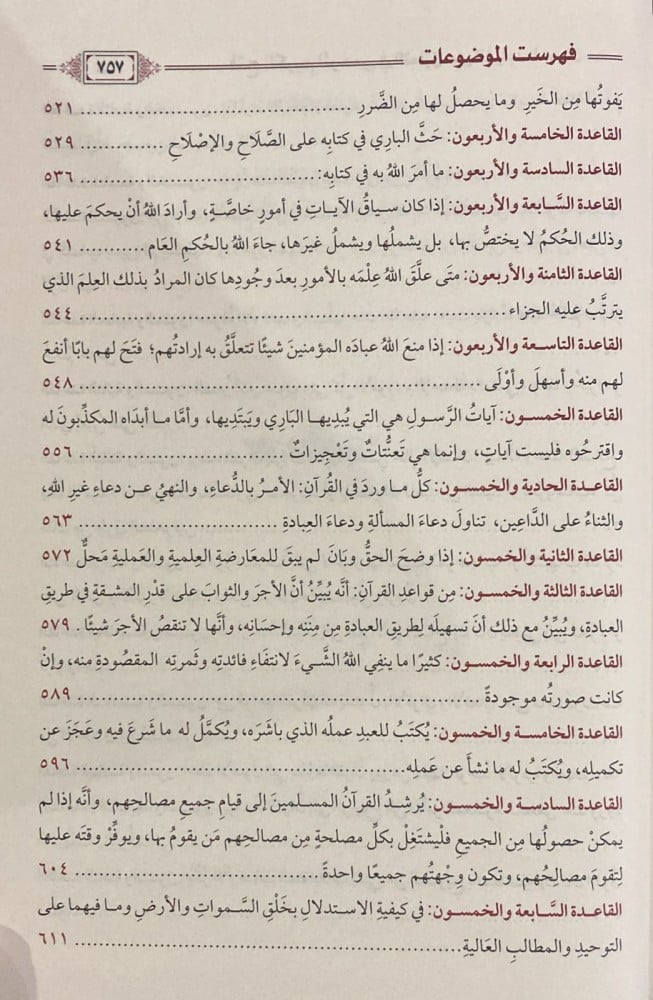 فهرست الموضوعات
٧٥٧
يَفوتُها مِن الخَيرِ وما يحصلُ لها مِن الضَّررِ ........ ٥٢١
القاعدة الخامسة والأربعون: حَثَّ البارِي في كتابِه على الصَّلَاحِ والإصْلَاحِ ........ ٥٢٩
القاعدة السادسة والأربعون: ما أمرَ اللهُ به في كتابِه: ........ ٥٣٦
القاعدة السَّابعة والأربعون: إذا كان سياقُ الآياتِ في أمورٍ خاصَّةٍ، وأرادَ اللهُ أنْ يحكمَ عليها،
وذلك الحُكمُ لا يختصُّ بها، بل يشملُها ويشملُ غيرَها، جاءَ اللهُ بالحُكمِ العَام ........ ٥٤١
القاعدة الثامنة والأربعون: متَى علَّقَ اللهُ عِلْمَه بالأمورِ بعدَ وجُودِها كان المرادُ بذلك العِلمَ الذي
يترتَّبُ عليه الجزاء ........ ٥٤٤
القاعدة التاسعة والأربعون: إذا منعَ اللهُ عبادَه المؤمنينَ شيئًا تتعلَّقُ به إرادتُهم؛ فتَحَ لهم بابًا أنفعَ
لهم منه وأسهلَ وأوْلَى ........ ٥٤٨
القاعدة الخمسون: آياتُ الرَّسولِ هي التي يُبدِيها البَارِي ويَبتَدِيها، وأمَّا ما أبدَاه المكذِّبونَ له
واقترحُوه فليست آياتٍ، وإنما هي تَعنُّتاتٌ وتَعْجِيزاتٌ ........ ٥٥٦
القاعدة الحادية والخمسون: كلُّ ما وردَ في القُرآنِ: الأمرُ بالدُّعاءِ، والنهيُ عن دعاءِ غيرِ اللهِ،
والثناءُ على الدَّاعِين، تناولَ دعاءَ المسألةِ ودعاءَ العِبادةِ ........ ٥٦٣
القاعدة الثانية والخمسون: إذا وضحَ الحقُّ وبَانَ لم يبقَ للمعَارضةِ العِلميةِ والعَمليةِ مَحلٌّ ٥٧٢
القاعدة الثالثة والخمسون: مِن قواعدِ القرآنِ: أنَّه يُبيِّنُ أنَّ الأجرَ والثوابَ على قدْرِ المشقةِ في طريقِ
العبادةِ، ويُبيِّنُ مع ذلك أنَ تسهيلَه لِطريقِ العبادةِ مِن مِنَنِه وإحسَانِه، وأنَّها لا تنقصُ الأجرَ شيئًا . ٥٧٩
القاعدة الرابعة والخمسون: كثيرًا ما ينفِي اللهُ الشَّيءَ لانتفَاءِ فائدتِه وثَمرتِه المقصُودةِ منه، وإنْ
كانت صورتُه موجودةً ........ ٥٨٩
القاعدة الخامسة والخمسون: يُكتَبُ للعبدِ عملُه الذي باشَرَه، ويُكمَّلُ له ما شرعَ فيه وعَجَزَ عن
تكميلِه، ويُكتَبُ له ما نشأَ عن عَملِه ........ ٥٩٦
القاعدة السادسة والخمسون: يُرشِدُ القرآنُ المسلمينَ إلى قيامِ جميعِ مصالحِهم، وأنَّه إذا لم
يمكنْ حصولُها مِن الجميعِ فلْيشتَغِلْ بكلِّ مصلحةٍ مِن مصالحِهم مَن يقومُ بها، ويوفِّرْ وقتَه عليها
لِتقومَ مصالحُهم، وتكون وِجْهتُهم جميعًا واحدةً ........ ٦٠٤
القاعدة السَّابعة والخمسون: في كيفيةِ الاستدلالِ بخَلْقِ السَّمواتِ والأرضِ وما فيهما على
التوحيدِ والمطالبِ العَاليةِ ........ ٦١١